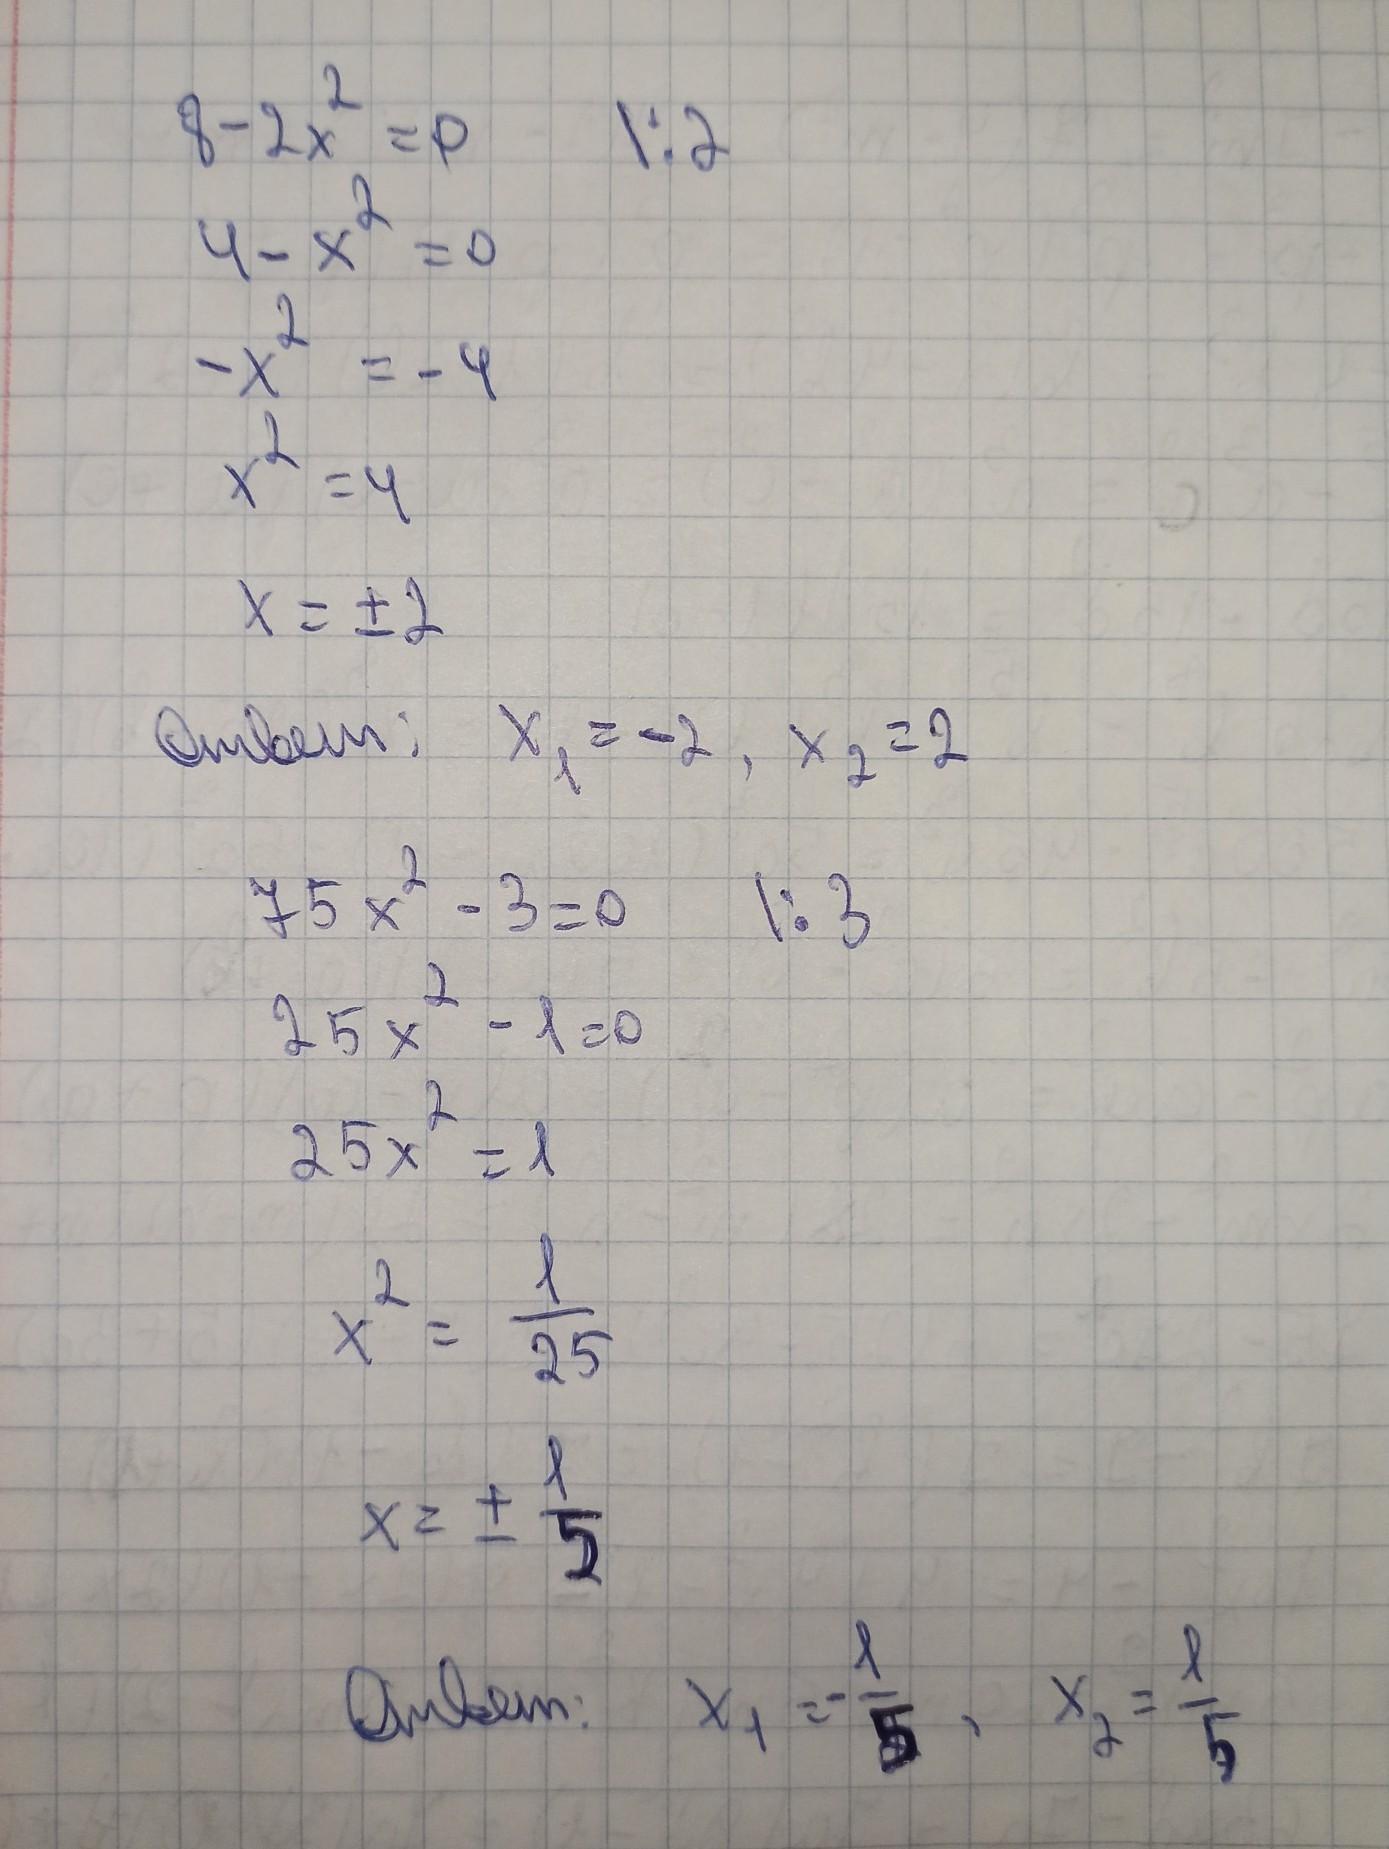 8-2x²=0 |:2
4-x²=0
-x²=-4
x²=4
x=±2
Ответ: x₁=-2, x₂=2
75x²-3=0 |:3
25x²-1=0
25x²=1
x²=1/25
x=±1/5
Ответ: x₁=-1/5, x₂=1/5